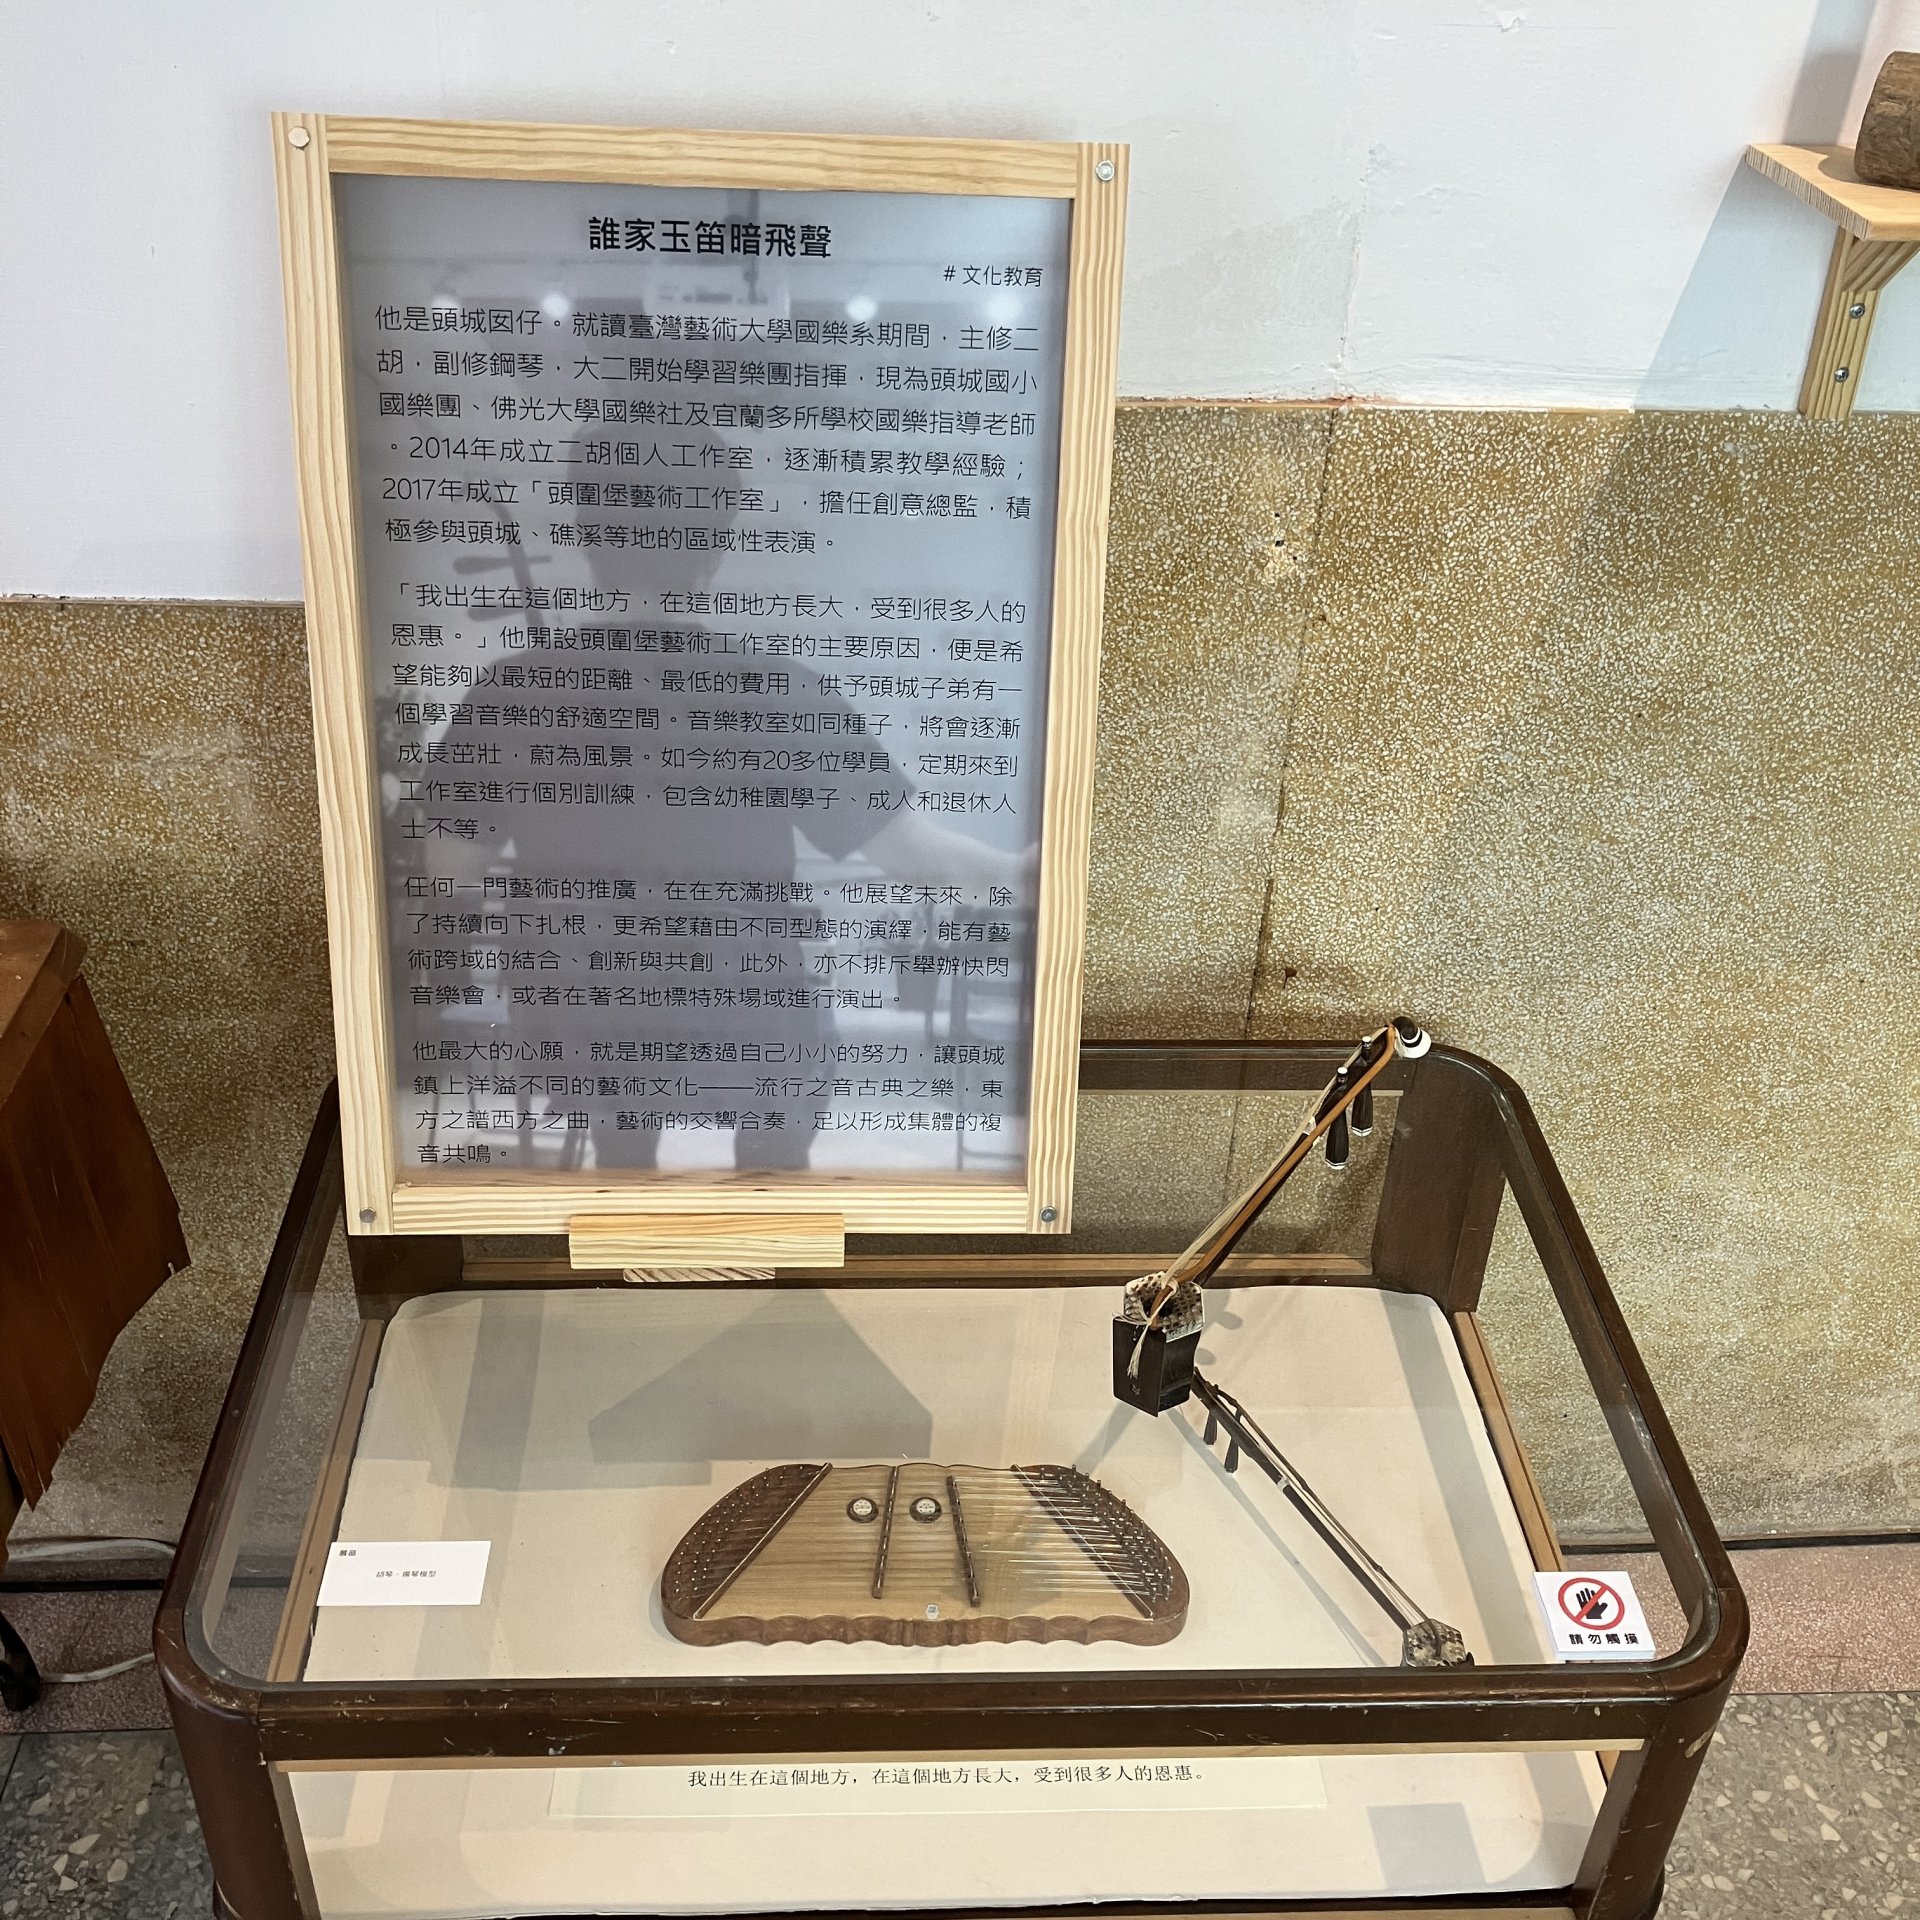 誰家玉笛暗飛聲
# 文化教育
他是頭城囡仔。就讀臺灣藝術大學國樂系期間，主修二
胡，副修鋼琴，大二開始學習樂團指揮，現為頭城國小
國樂團、佛光大學國樂社及宜蘭多所學校國樂指導老師
。2014年成立二胡個人工作室，逐漸積累教學經驗；
2017年成立「頭圍堡藝術工作室」，擔任創意總監，積
極參與頭城、礁溪等地的區域性表演。
「我出生在這個地方，在這個地方長大，受到很多人的
恩惠。」他開設頭圍堡藝術工作室的主要原因，便是希
望能夠以最短的距離、最低的費用，供予頭城子弟有一
個學習音樂的舒適空間。音樂教室如同種子，將會逐漸
成長茁壯，蔚為風景。如今約有20多位學員，定期來到
工作室進行個別訓練，包含幼稚園學子、成人和退休人
士不等。
任何一門藝術的推廣，在在充滿挑戰。他展望未來，除
了持續向下扎根，更希望藉由不同型態的演繹，能有藝
術跨域的結合、創新與共創，此外，亦不排斥舉辦快閃
音樂會，或者在著名地標特殊場域進行演出。
他最大的心願，就是期望透過自己小小的努力，讓頭城
鎮上洋溢不同的藝術文化——流行之音古典之樂，東
方之譜西方之曲，藝術的交響合奏，足以形成集體的複
音共鳴。
展品
胡琴、揚琴模型
請勿觸摸
我出生在這個地方，在這個地方長大，受到很多人的恩惠。